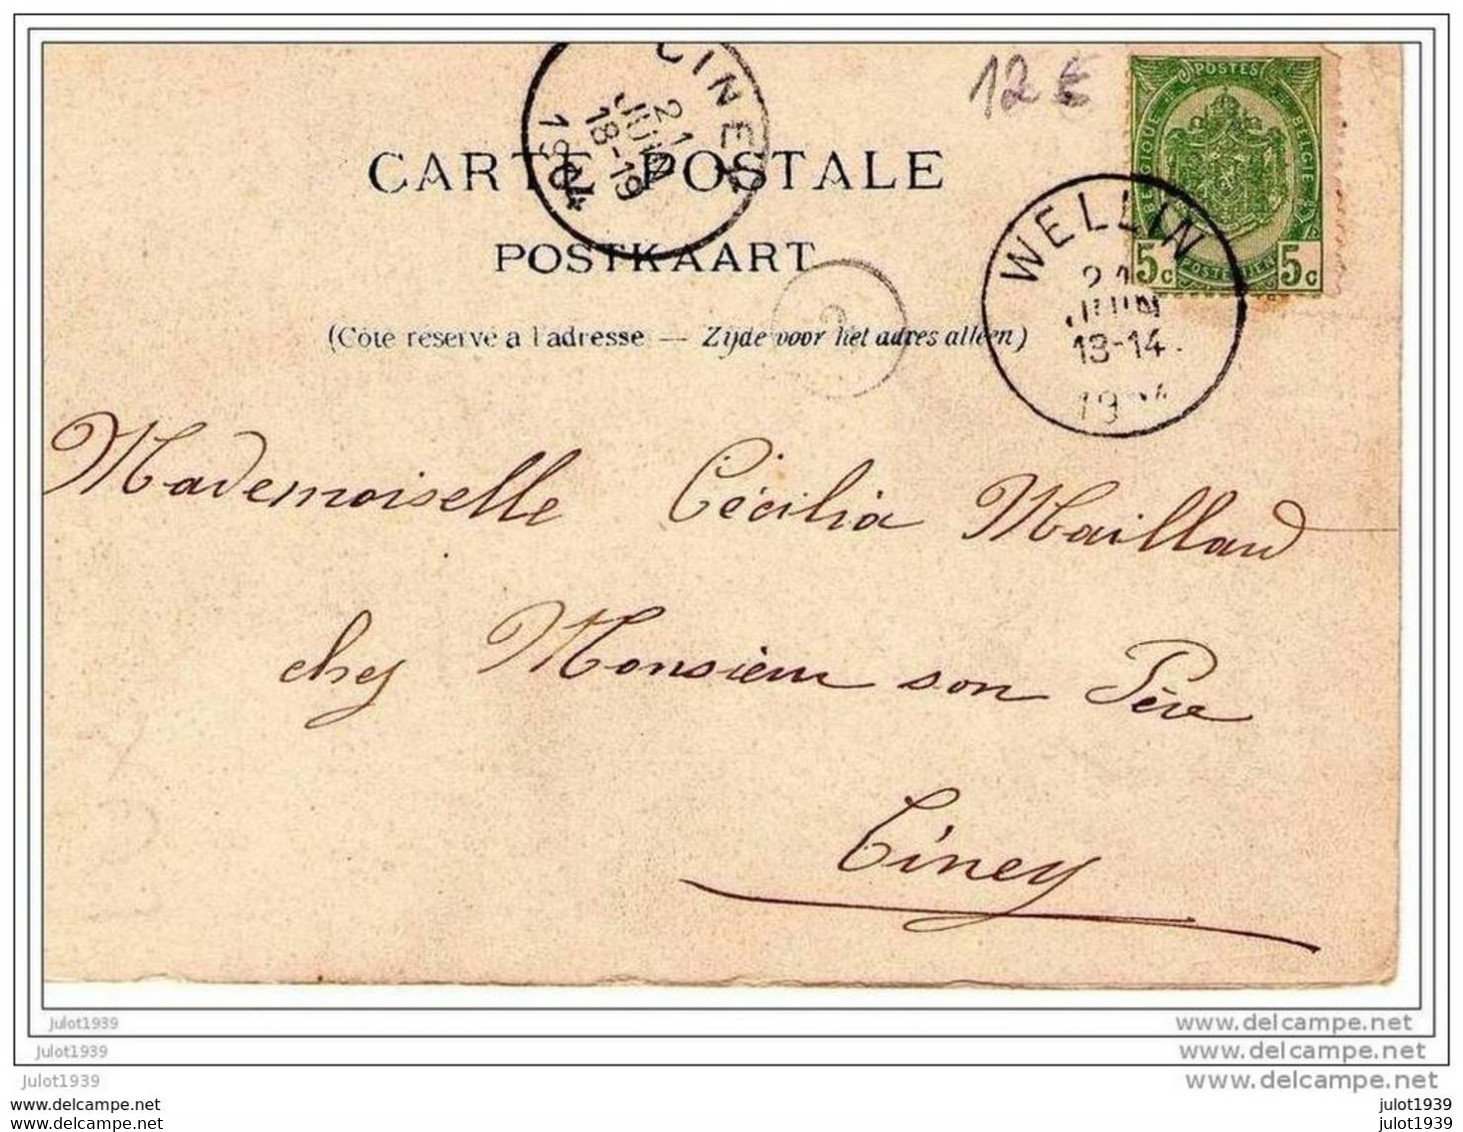 12 €
CINEY
21
JUIN
18-19
1904
POSTES
BELGIQUE
BELGIE
5c POSTERIJEN 5c
CARTE POSTALE
WELLIN
21
JUIN
13-14
POSTKAART
(Côté réservé à l'adresse — Zijde voor het adres alleen)
Mademoiselle Cécilia Maillard
chez Monsieur son Père
Ciney
julot1939
www.delcampe.net
julot1939
www.delcampe.net
julot1939
www.delcampe.net
www.delcampe.net
julot1939
www.delcampe.net
julot1939